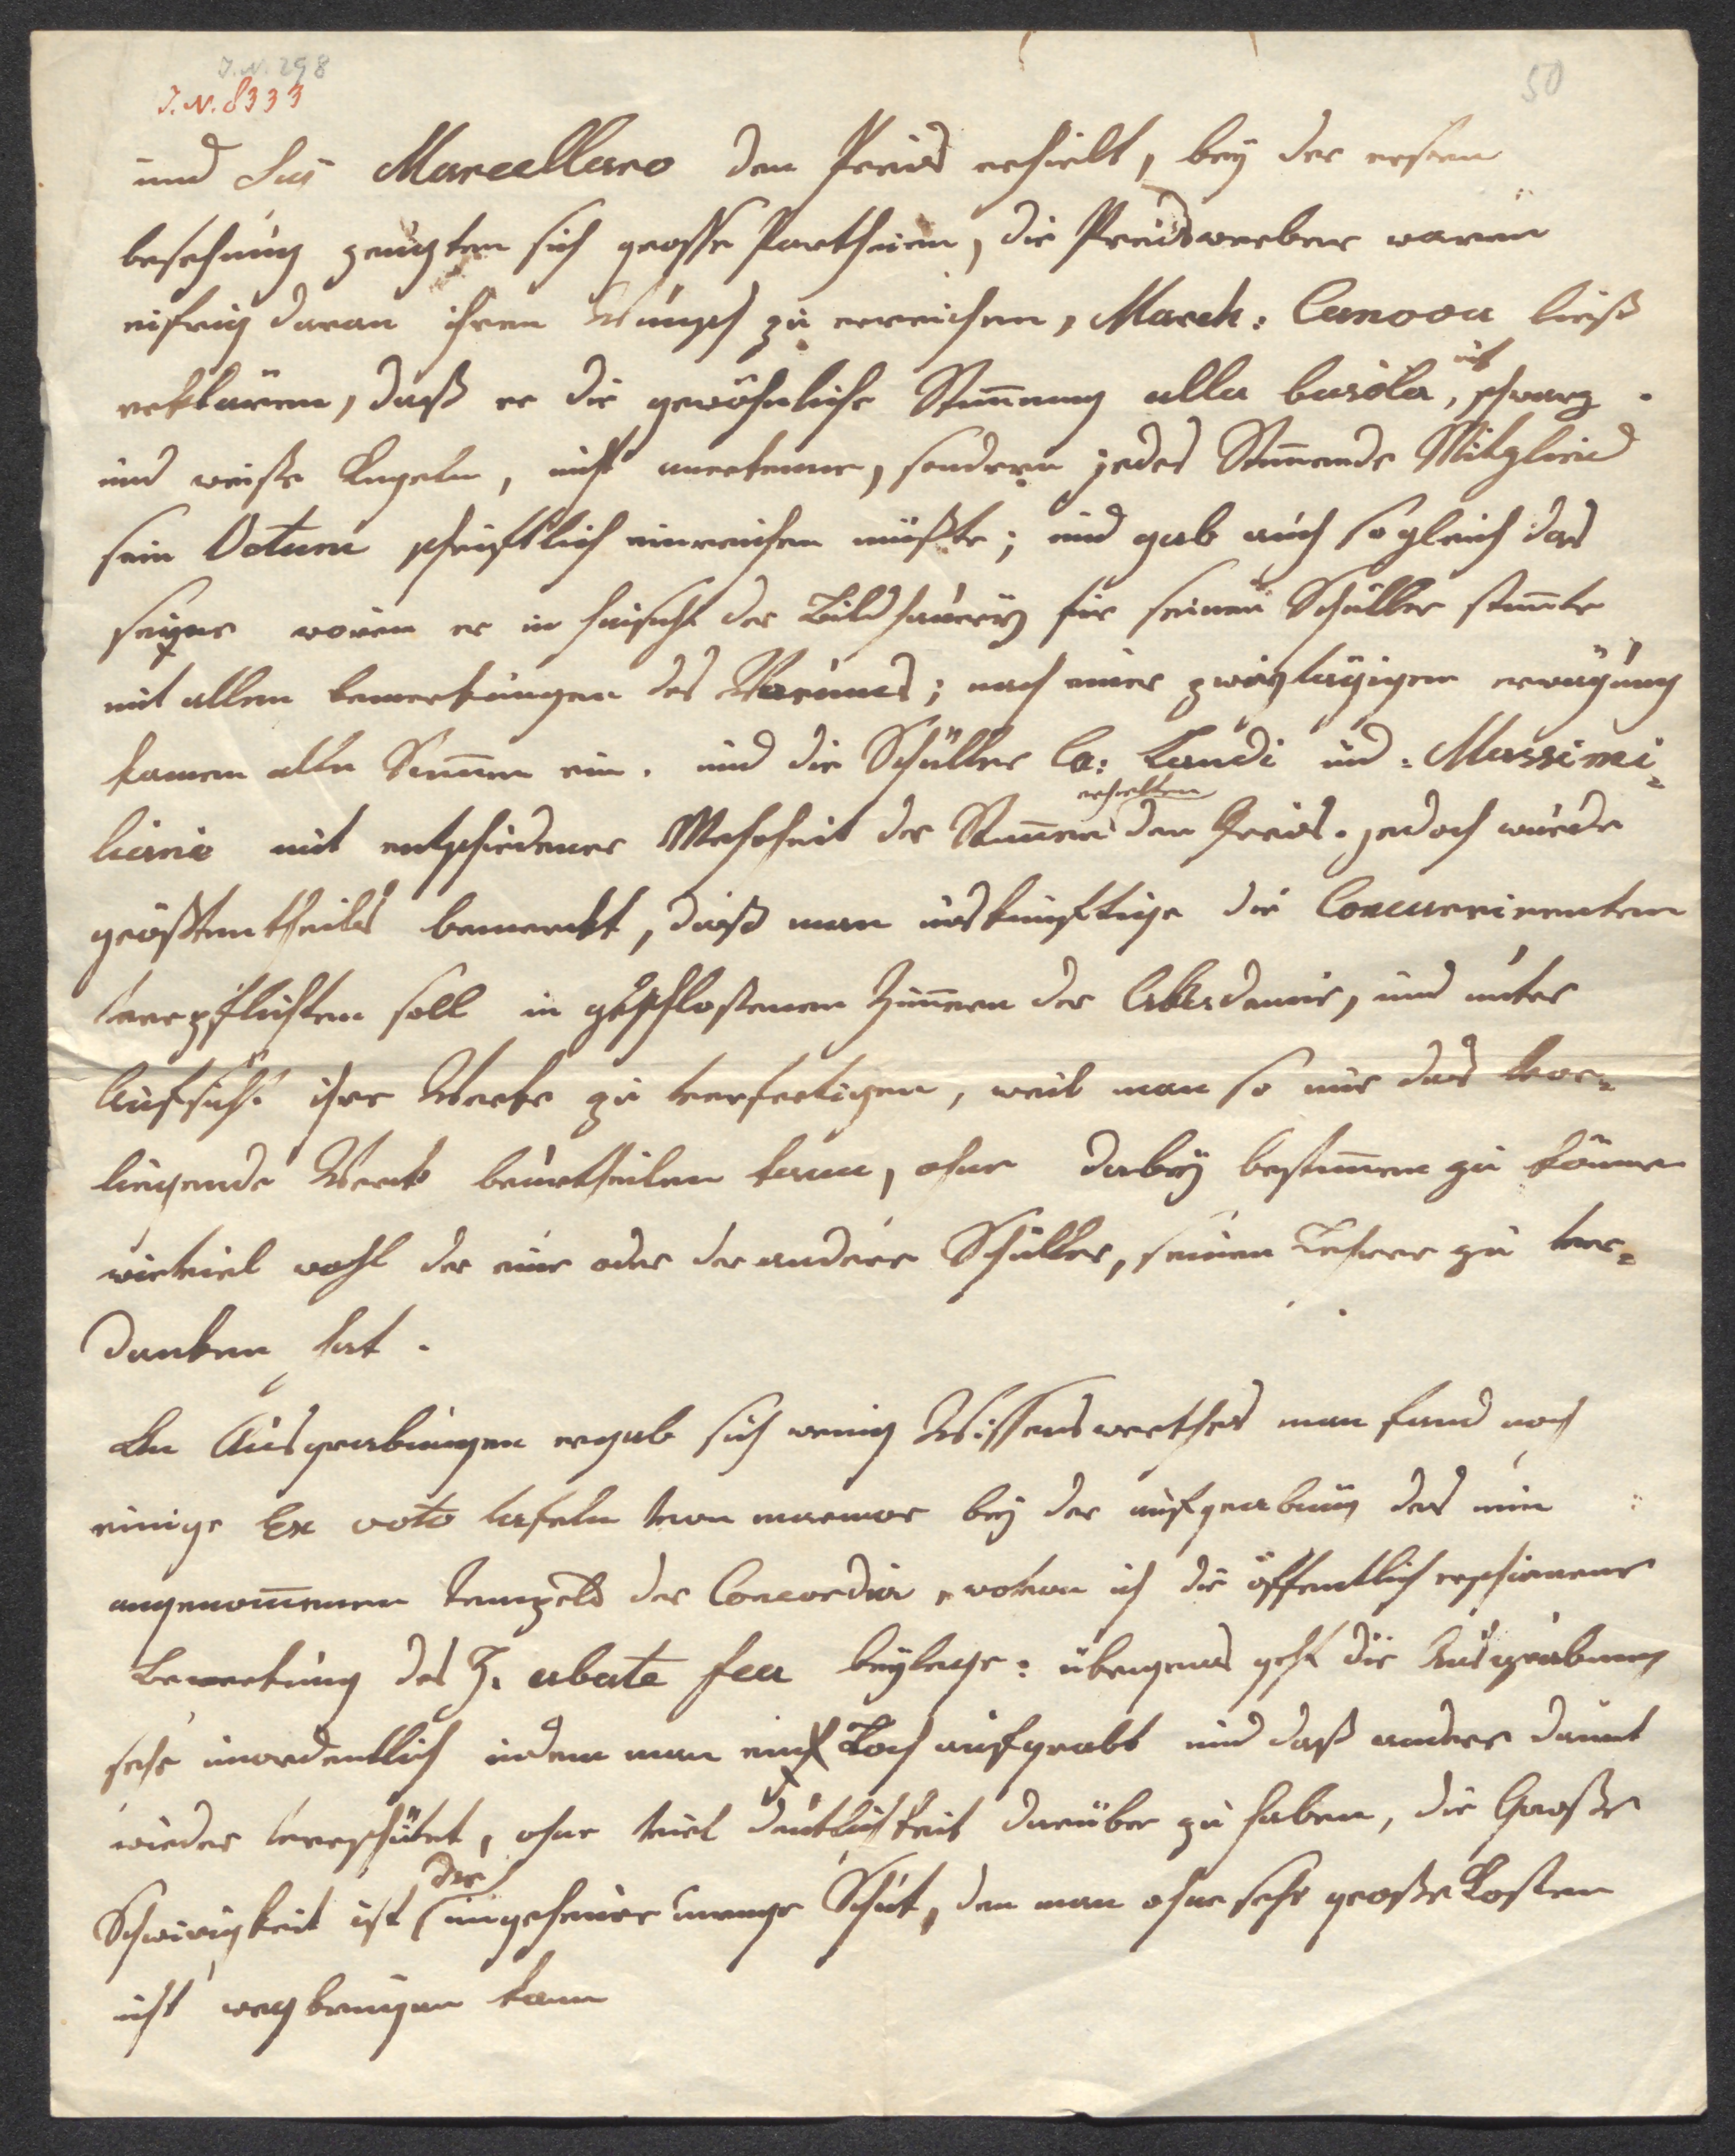 J.N. 298
J.N. 8333
50
und Marcellaro den Preis erhielt, bey der ersten
besehung zeugten sich grosse Partheien, die Preiswerber waren
eifrig daran ihren Wunsch zu erreichen, March: Canova ließ
erklären, daß er die gewöhnliche Stimmung alla busola, mit schwarz
und weiße Kugeln, nicht anerkenne, sondern jedes Stimmende Mitglied
sein Votum schriftlich einreichen müßte; und gab auch sogleich das
seine worin er in hinsicht der Bildhauerey für seinen Schüller stimmte
mit allen bemerkungen des Warums; nach einer zweytägigen erwägung
kamen alle Stimmen ein. und die Schüller Ca: Landi und: Massimi-
liano mit entschiedener Mehrheit der Stimmen erhielten den Preis. jedoch wurde
größtentheils bemerckt, daß man inskünftige die Concurrirenten
verpflichten soll in geschloßenen Zimmern der Akademie, und unter
Aufsicht ihre Werke zu verfertigen, weil man so nur das vor-
liegende Werk beurtheilen kann, ohne dabey bestimmen zu können
wieviel wohl der eine oder der andere Schüller, seinen Lehrer zu ver-
danken hat.
An Ausgrabungen ergab sich wenig Wissenswerthes man fand noch
einige Ex voto tafeln von marmor bey der aufgrabung des nun
angenommenen Tempels der Concordia, wovon ich die öffentlich erschienene
Bemerkung des H. abate fea beylege: übrigens geht die Ausgrabung
sehr unordentlich indem man ein Loch aufgrabt und daß andere damit
wieder verschütet, ohne viel deutlichkeit darüber zu haben, die Große
Schwirigkeit ist die ungeheure menge Schut, den man ohne sehr große Kosten
nicht wegbringen kann